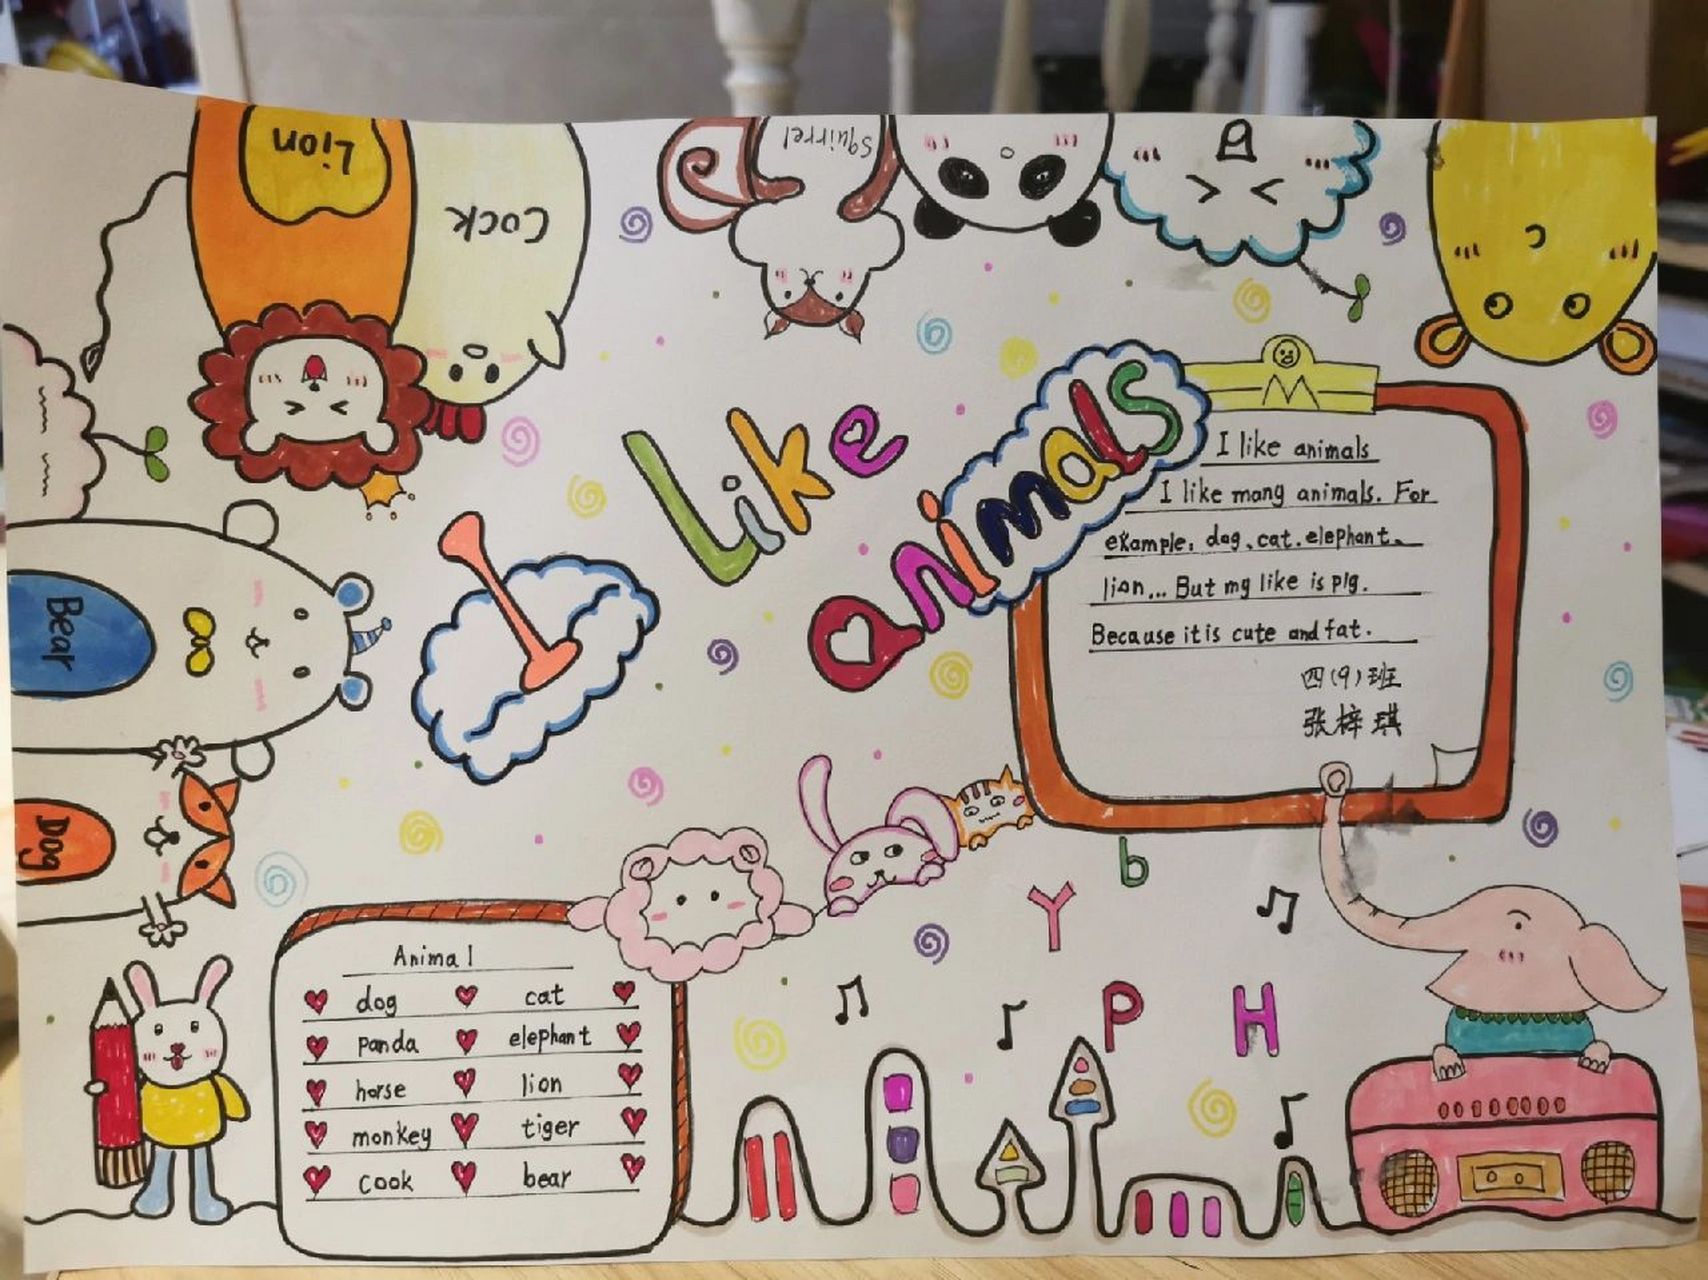 Lion
Cock
Squirrel
Bear
Dog
I Like
animals
I like animals
I like mang animals. For
example, dog, cat. elephant、
lion... But my like is pig.
Because it is cute and fat.
四(9)班
张梓琪
Y b
P H
Animal
dog cat
panda elephant
horse lion
monkey tiger
cook bear